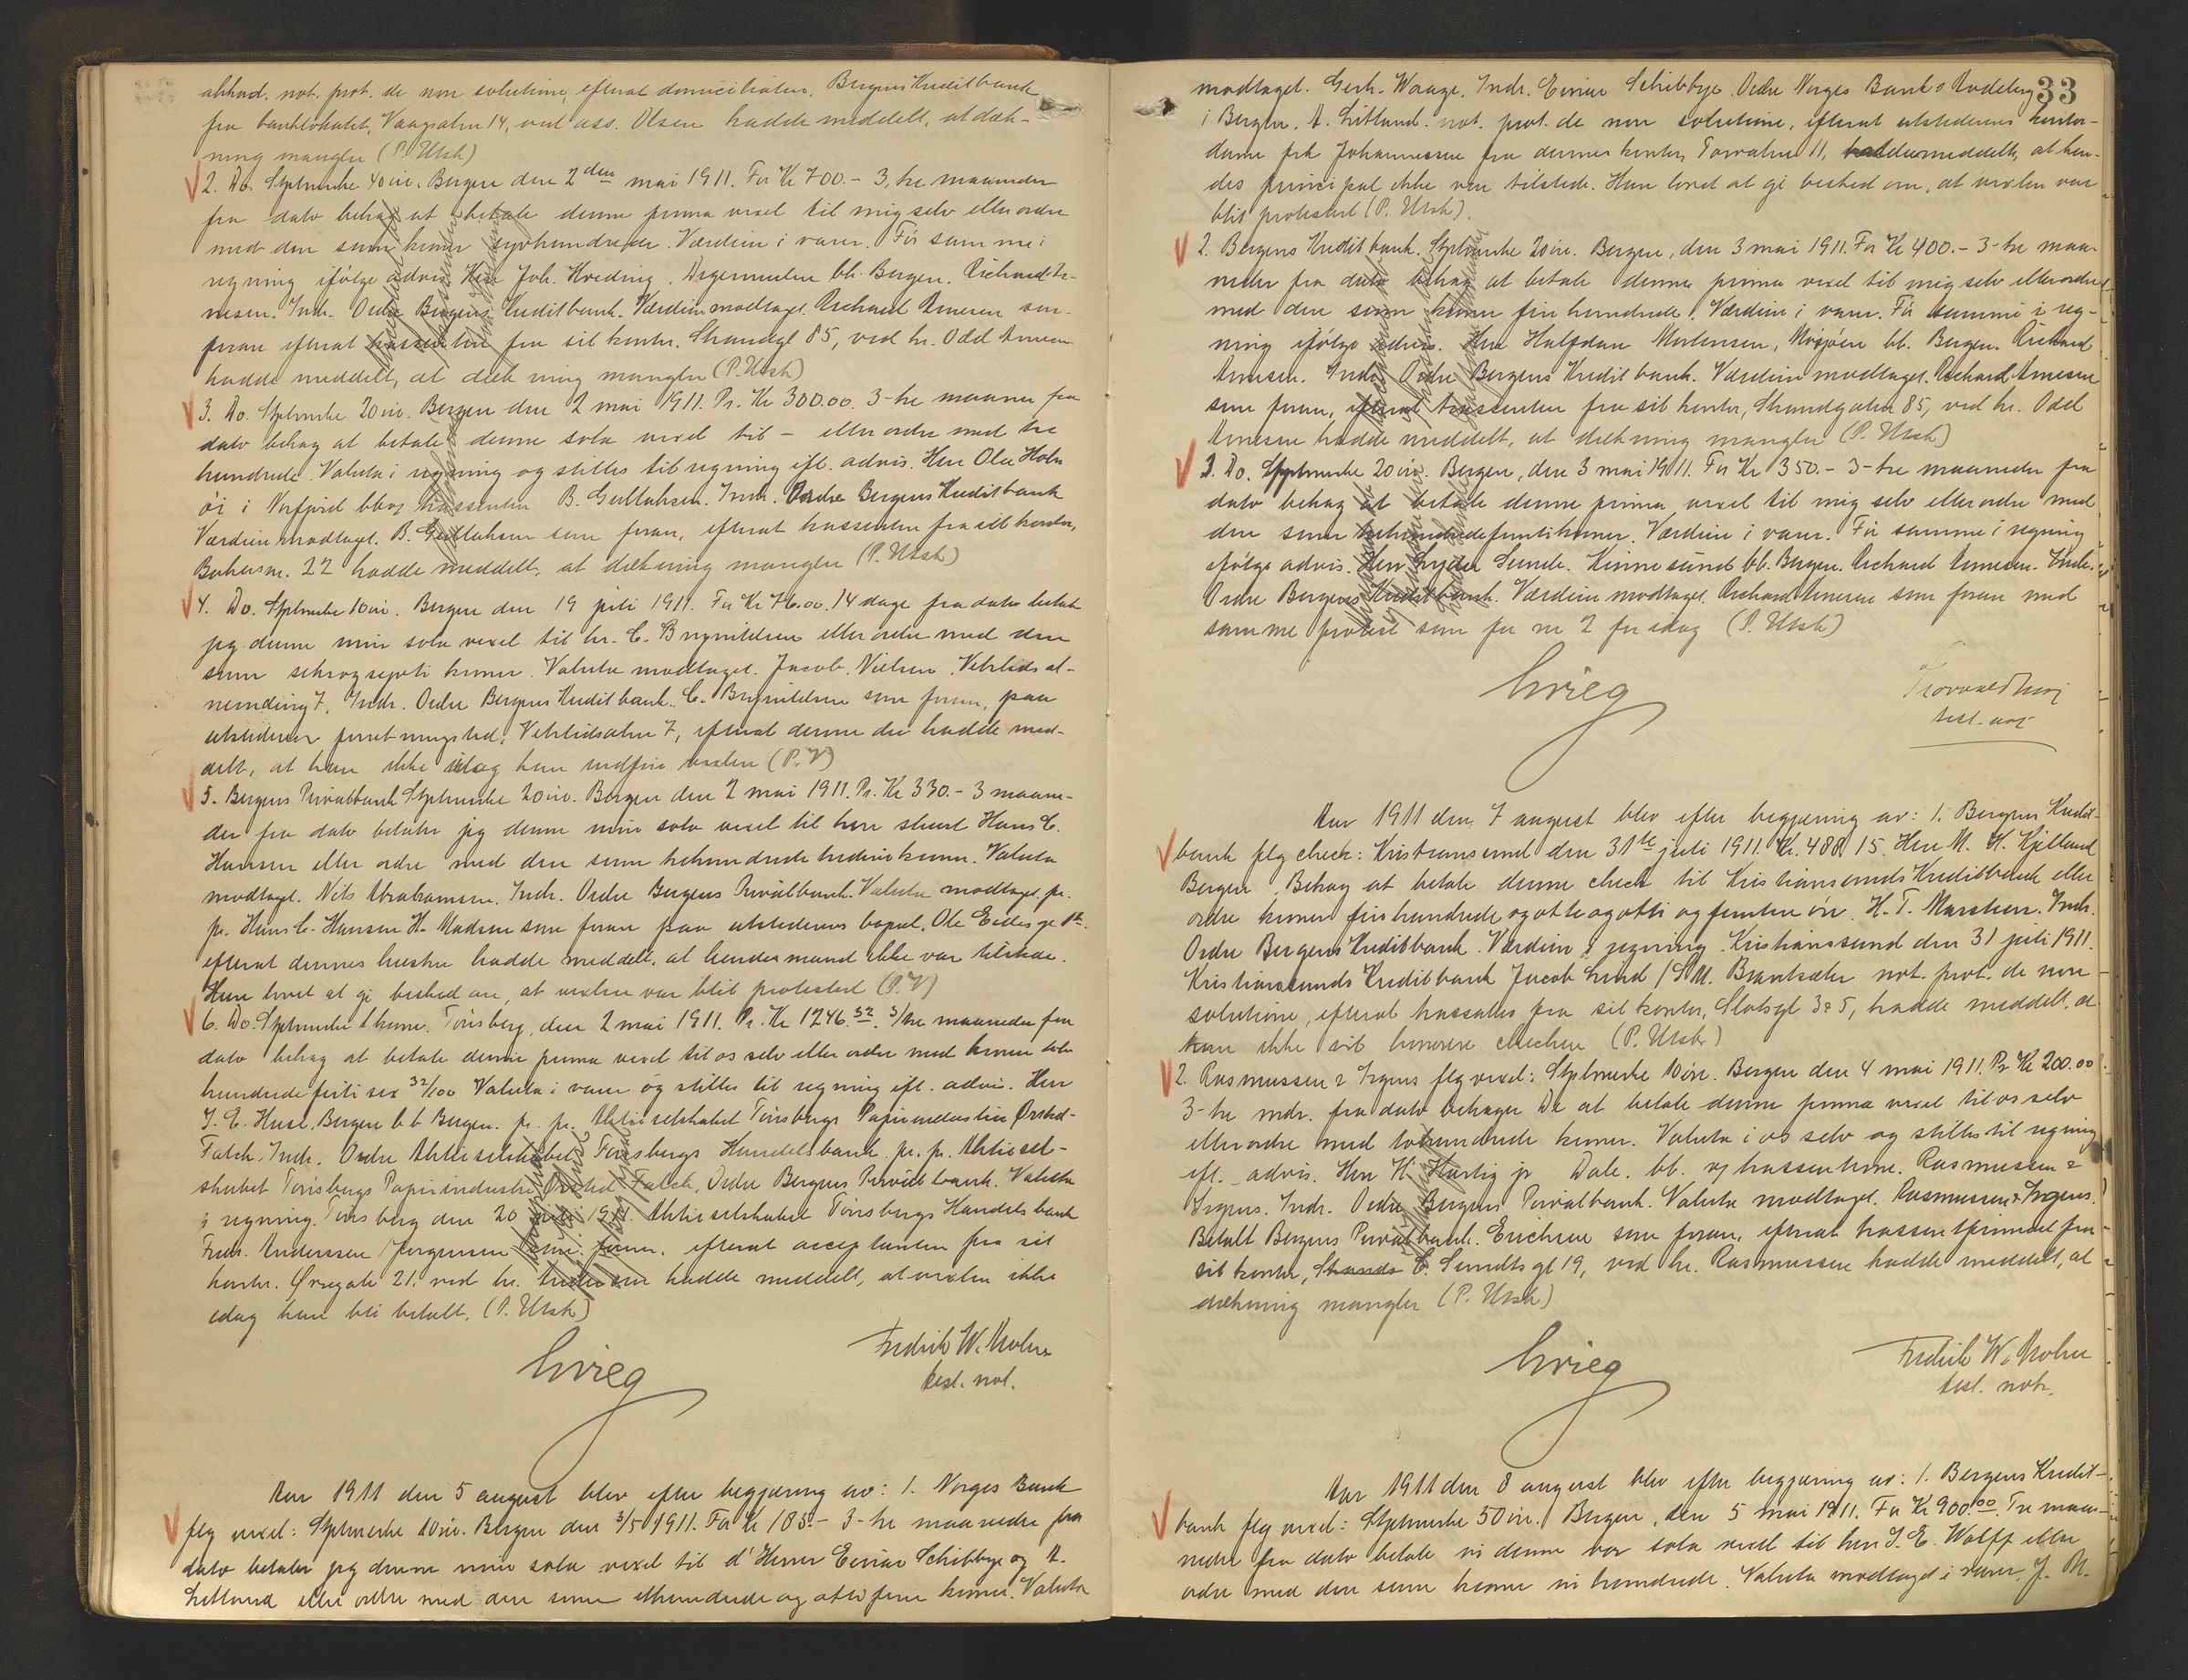 not. prot. de non solutione, efterat domiciliaten, Bergens Kreditbank
fra banklokalet, Vaagsalm 14, ved ass. Olsen hadde meddelt, at dæk-
ning mangler (P. Utsk)
2. Do. Stplmerke 40 øre. Bergen den 2den mai 1911. For Kr 700.- 3, tre maaneder
fra dato behag at betale denne prima vexel til mig selv eller ordre
med den sum kroner syvhundrede. Værdien i varer. Før samme i
regning ifølge advis. Herr Joh. Kveding. Digermulen bb. Bergen. Richard Ar-
nesen. Indr. Ordre Bergens Kreditbank. Værdien modtaget. Richard Arnesen som
foran efterat trassenten fra sit kontor, Strandgt 85, ved hr. Odd Arnesen
hadde meddelt, at dækning mangler (P. Utsk)
3. Do. Stplmerke 20 øre. Bergen den 2 mai 1911. Pr. Kr 300.00. 3-tre maaner fra
dato behag at betale denne sola vexel til - eller ordre med tre
hundrede. Valuta i regning og stilles til regning ifl. advis. Herr Ole Holm
øi i Nerfjord bb og trassenten B. Gullaksen. Indr. Ordre Bergens Kreditbank
Værdien modtaget. B. Gullaksen som foran, efterat trassenten fra sit kontor,
22 hadde meddelt, at dækning mangler (P. Utsk)
4. Do. Stplmerke 10 øre. Bergen den 19 juli 1911. For Kr 76.00. 14 dage fra dato betaler
jeg denne min sola vexel til hr. C. Brynildsen eller ordre med den
sum seksogsytti kroner. Valuta modtaget. Jacob Nielsen. Vetrlidsal-
mending 7. Indr. Ordre Bergens Kreditbank. C. Brynildsen som foran, paa
utstederens forretningssted, Vetrlidsalm 7, efterat denne der hadde med-
delt, at han ikke idag kan indfri vexlen (P.V)
5. Bergens Privatbank Stplmerke 20 øre. Bergen den 2 mai 1911. Pr. Kr 330.- 3 maane-
der fra dato betaler jeg denne min sola vexel til herr Hans C.
Hansen eller ordre med den sum trehundrede tredive kroner. Valuta
modtaget. Nils Abrahamsen. Indr. Ordre Bergens Privatbank. Valuta modtaget. pr.
pr. Hans C. Hansen H. Madsen som foran paa utstederens bopæl,
efterat dennes hustru hadde meddelt, at hendes mand ikke var tilstede.
Hun lovet at gi besked om, at vexlen var blit protestert (P.V)
6. Do. Stplmerke 1 krone. Tønsberg, den 2 mai 1911. Pr. Kr 1246.32. 3/tre maaneder fra
dato behag at betale denne prima vexel til os selv eller ordre med kroner tolv
hundrede førti sex 32/100 Valuta i varer og stilles til regning ifl. advis. Herr
J. E. Huse, Bergen bb Bergen. pr. pr. Aktieselskabet Tønsbergs Papirindustri Ørsted-
Falck. Indr. Ordre Aktieselskabet Tønsbergs Handelsbank. pr. pr. Aktiesel-
skabet Tønsbergs Papirindustri Ørsted Falck, Ordre Bergens Privatbank. Valuta
i regning. Tønsberg den 20 juli 1911. Aktieselskabet Tønsbergs Handelsbank
Fredr. Anderssen Jørgensen som foran, efterat acceptanten fra sit
kontor, Øvregate 21, ved hr. hadde meddelt, at vexlen ikke
idag kan bli betalt. (P. Utsk)
Grieg
Fredrik W. Mohn
best. not.
Aar 1911 den 5 august blev efter begjæring av: 1. Norges Bank
flg vexel: Stplmerke 10 øre. Bergen den 3/5 1911. For Kr 185.- 3-tre maaneder fra
dato betaler jeg denne min sola vexel til d'Herrer Einar Schibbye og A.
Litland eller ordre med den sum ethundrede og otti fem kroner. Valuta
33
modtaget. Gerh. Waage. Indr. Einar Schibbye. Ordre Norges Banks Avdeling
i Bergen. A. Litland. not. prot. de non solutione, efterat utstederens kontor-
dame frk Johannessen fra dennes kontor, Torvalm 11, hadde meddelt, at hen-
des principal ikke var tilstede. Hun lovet at gi besked om, at vexlen var
blit protestert (P. Utsk).
2. Bergens Kreditbank. Stplmerke 20 øre. Bergen, den 3 mai 1911. For Kr 400.- 3-tre maa-
neder fra dato behag at betale denne prima vexel til mig selv eller ordre
med den sum kroner fire hundrede. Værdien i varer. Før samme i reg-
ning ifølge advis. Herr Halfdan Mortensen, Mosjøen bb. Bergen. Richard
Arnesen. Indr. Ordre Bergens Kreditbank. Værdien modtaget. Richard Arnesen
som foran, efterat trassenten fra sit kontor, Strandgaten 85, ved hr. Odd
Arnesen hadde meddelt, at dækning mangler (P. Utsk)
3. Do. Stplmerke 20 øre. Bergen, den 3 mai 1911. For Kr 350.- 3-tre maaneder fra
dato behag at betale denne prima vexel til mig selv eller ordre med
den sum trehundredefemtikroner. Værdien i varer. Før samme i regning
ifølge advis. Herr Lyder Sunde. Kinnesund bb. Bergen. Richard Arnesen. Indr.
Ordre Bergens Kreditbank. Værdien modtaget. Richard Arnesen som foran med
samme protest som for nr 2 for idag (P. Utsk)
Grieg
best. not
Aar 1911 den 7 august blev efter begjæring av: 1. Bergens Kredit-
bank flg check: Kristiansund den 31te juli 1911. Kr. 488.15. Herr M. H. Kjelland
Bergen. Behag at betale denne check til Kristiansunds Kreditbank eller
ordre kroner fire hundrede og otte og otti og femten øre. H. T. Marstein. Indr.
Ordre Bergens Kreditbank. Værdien i regning. Kristianssund den 31 juli 1911.
Kristianssunds Kreditbank Jacob Lund / S. M. Brantzæter not. prot. de non
solutione, efterat trassatus fra sit kontor, Slotsgt 3 & 5, hadde meddelt, at
han ikke vil honorere checken (P. Utsk)
2. Rasmussen & Irgens flg vexel: Stplmerke 10 øre. Bergen den 4 mai 1911. Pr Kr 200.00
3-tre mdr. fra dato behager De at betale denne prima vexel til os selv
eller ordre med tohundrede kroner. Valuta i os selv og stilles til regning
ifl. advis. Herr H. Hartig jr Dale. bb. og trassenterne. Rasmussen &
Irgens. Indr. Ordre Bergens Privatbank. Valuta modtaget. Rasmussen & Irgens.
Betalt Bergens Privatbank. Erichsen som foran, efterat trassentfirmaet fra
sit kontor, Strands C. Sundtsgt 19, ved hr. Rasmussen hadde meddelt, at
dækning mangler (P. Utsk)
Grieg
Fredrik W. Mohn
best. not.
Aar 1911 den 8 august blev efter begjæring av: 1. Bergens Kredit-
bank flg vexel: Stplmerke 50 øre. Bergen, den 5 mai 1911. For Kr 900.00. Tre maa-
neder fra dato betale vi denne vor sola vexel til herr J. E. Wolff eller
ordre med den sum kroner ni hundrede. Valuta modtaget i varer. J. M.